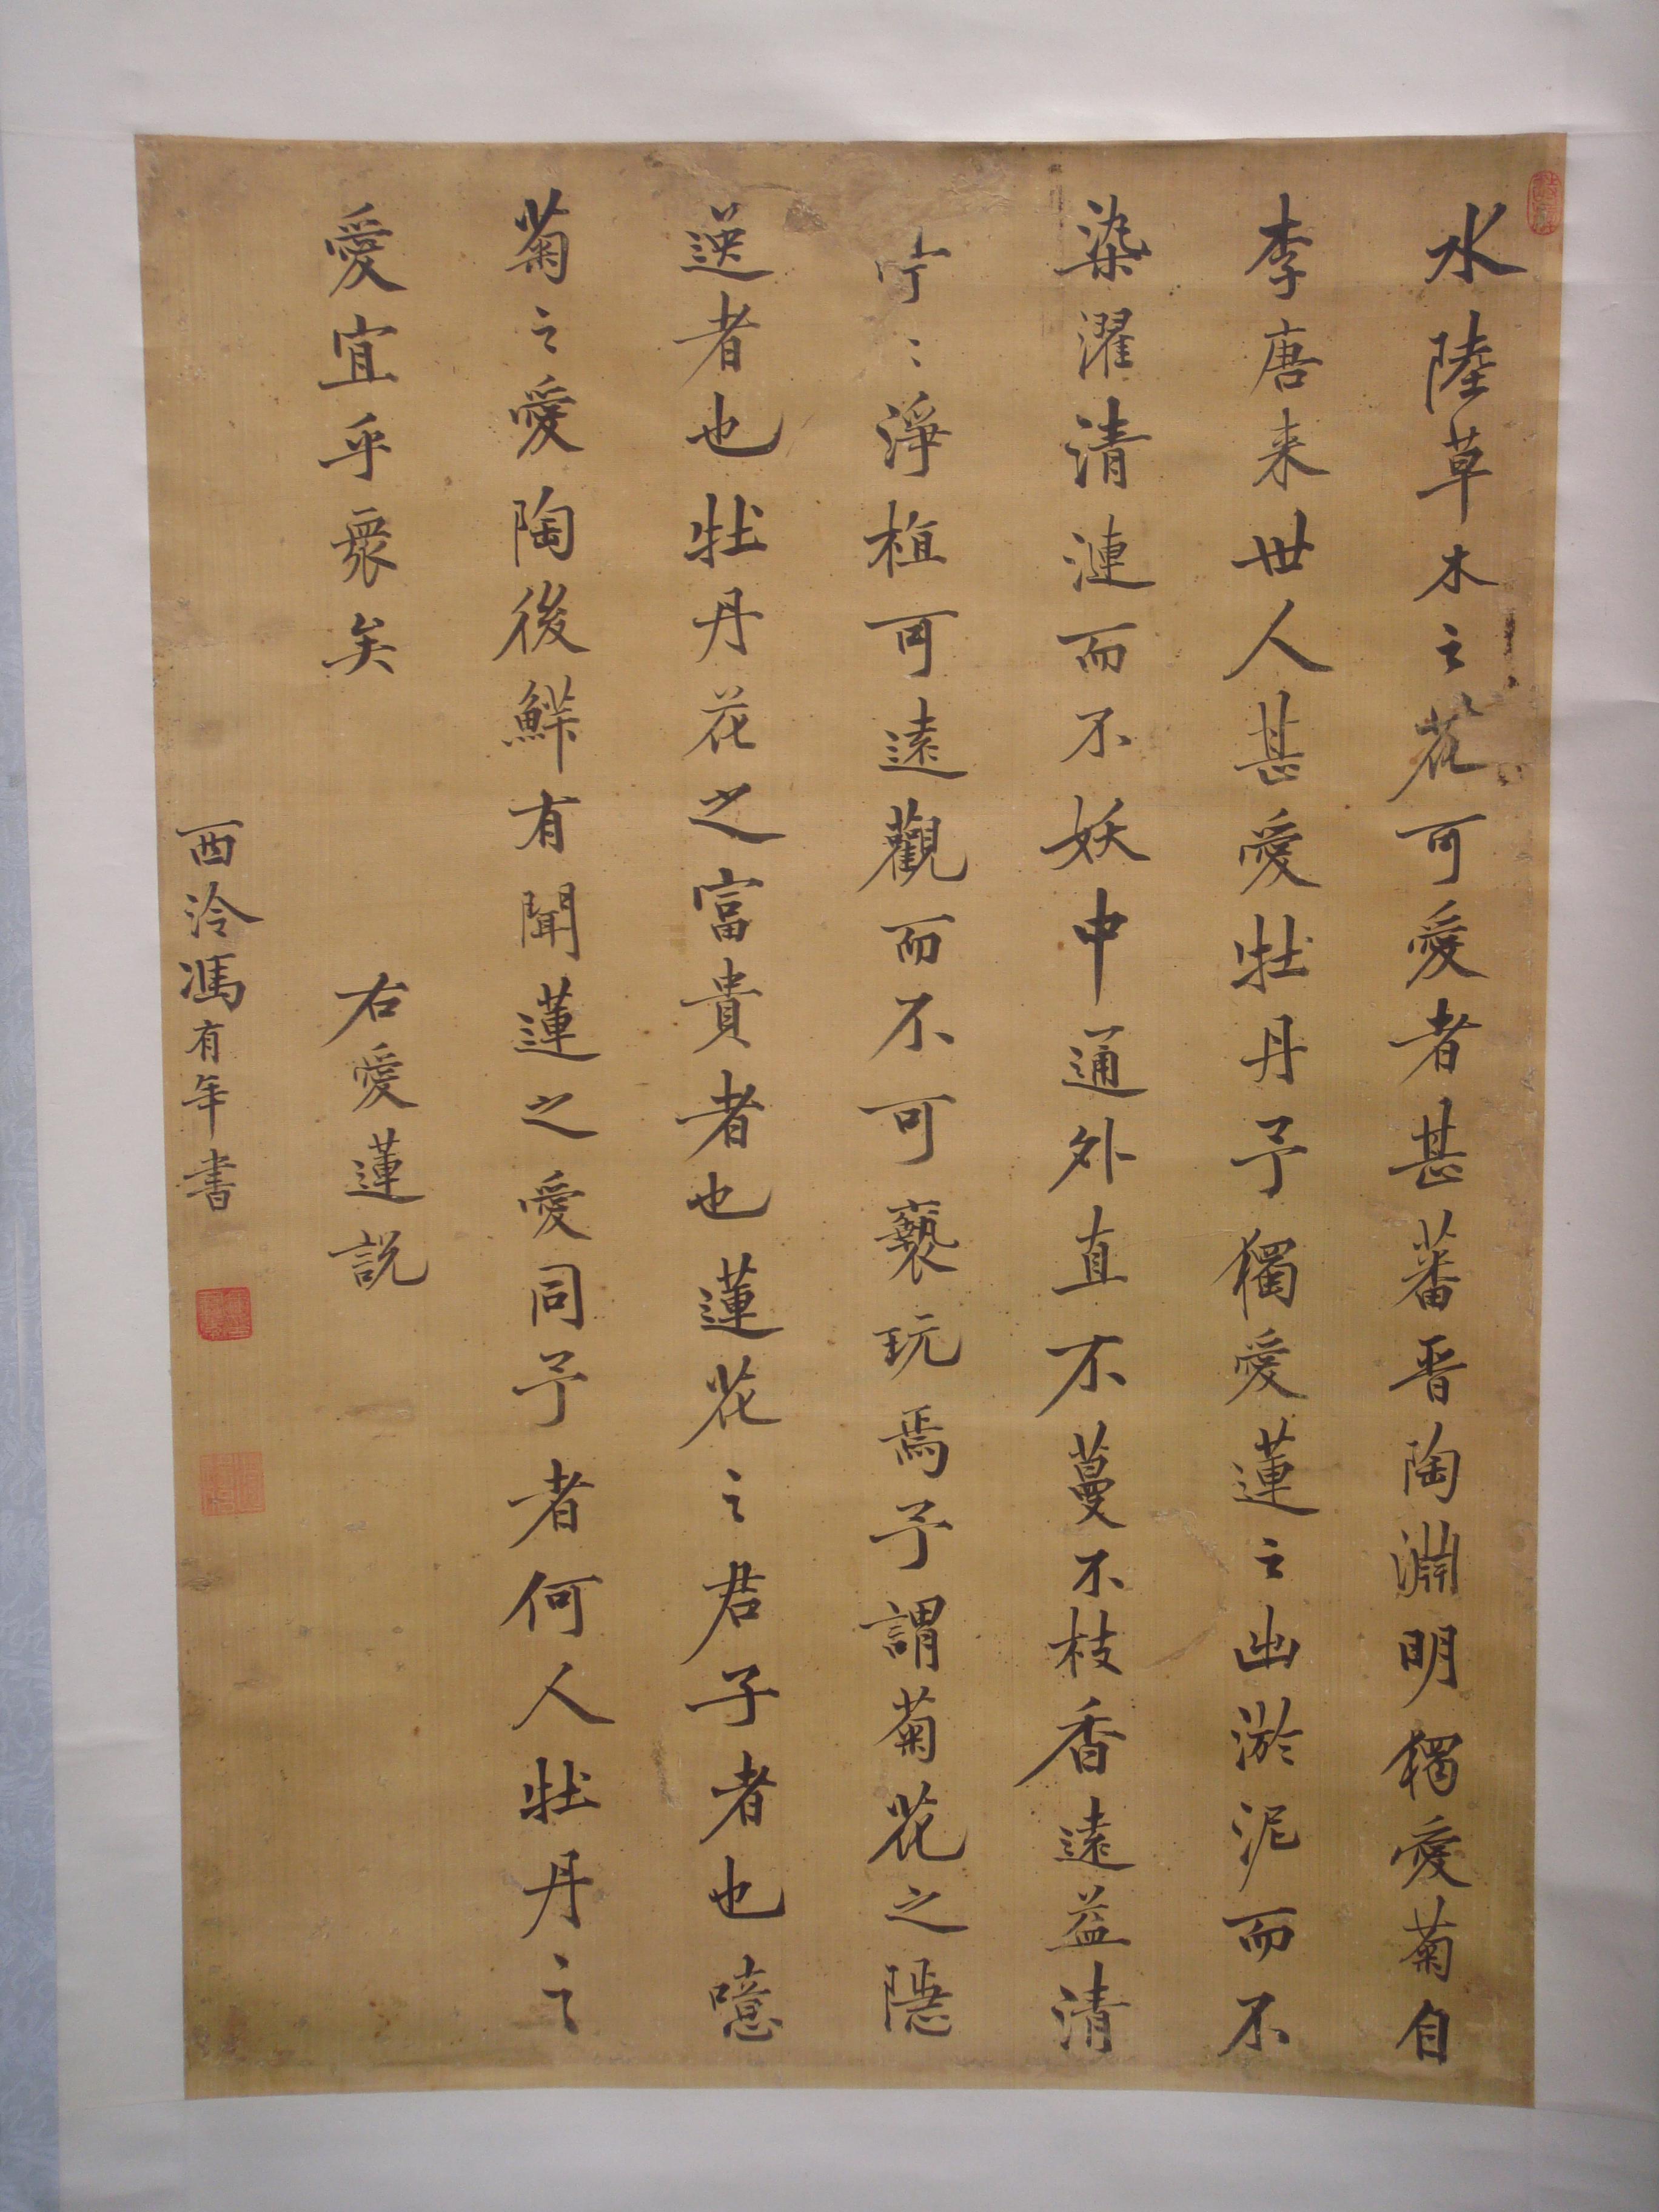 水陸草木之花可愛者甚蕃晋陶淵明獨愛菊自
李唐来世人甚愛牡丹予獨愛蓮之出淤泥而不
染濯清漣而不妖中通外直不蔓不枝香遠益清
亭〻淨植可遠觀而不可褻玩焉予謂菊花之隱
逸者也牡丹花之富貴者也蓮花之君子者也噫
菊之愛陶後鮮有聞蓮之愛同予者何人牡丹之
愛宜乎衆矣 右愛蓮説
西泠馮有年書